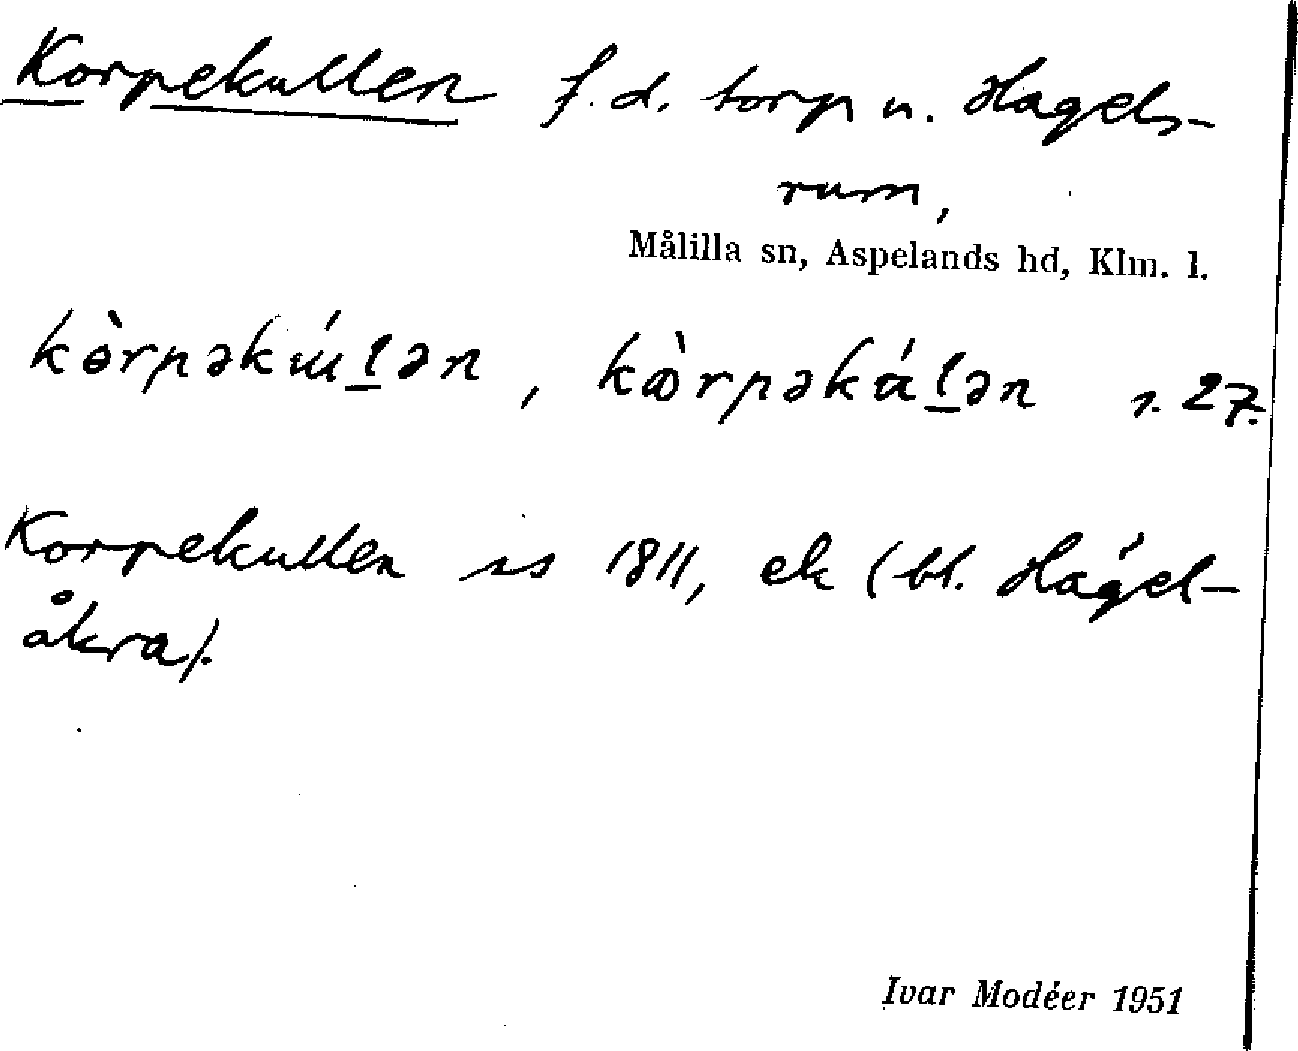 Korpekullen f.d. torp u. Hagels-
rum,
Målilla sn, Aspelands hd, Klm. l.
kòrpəkúlən, kòrpəkálən s. 27.
Korpekullen ss 1811, ek (bl. Hagel-
åkra).
Ivar Modéer 1951